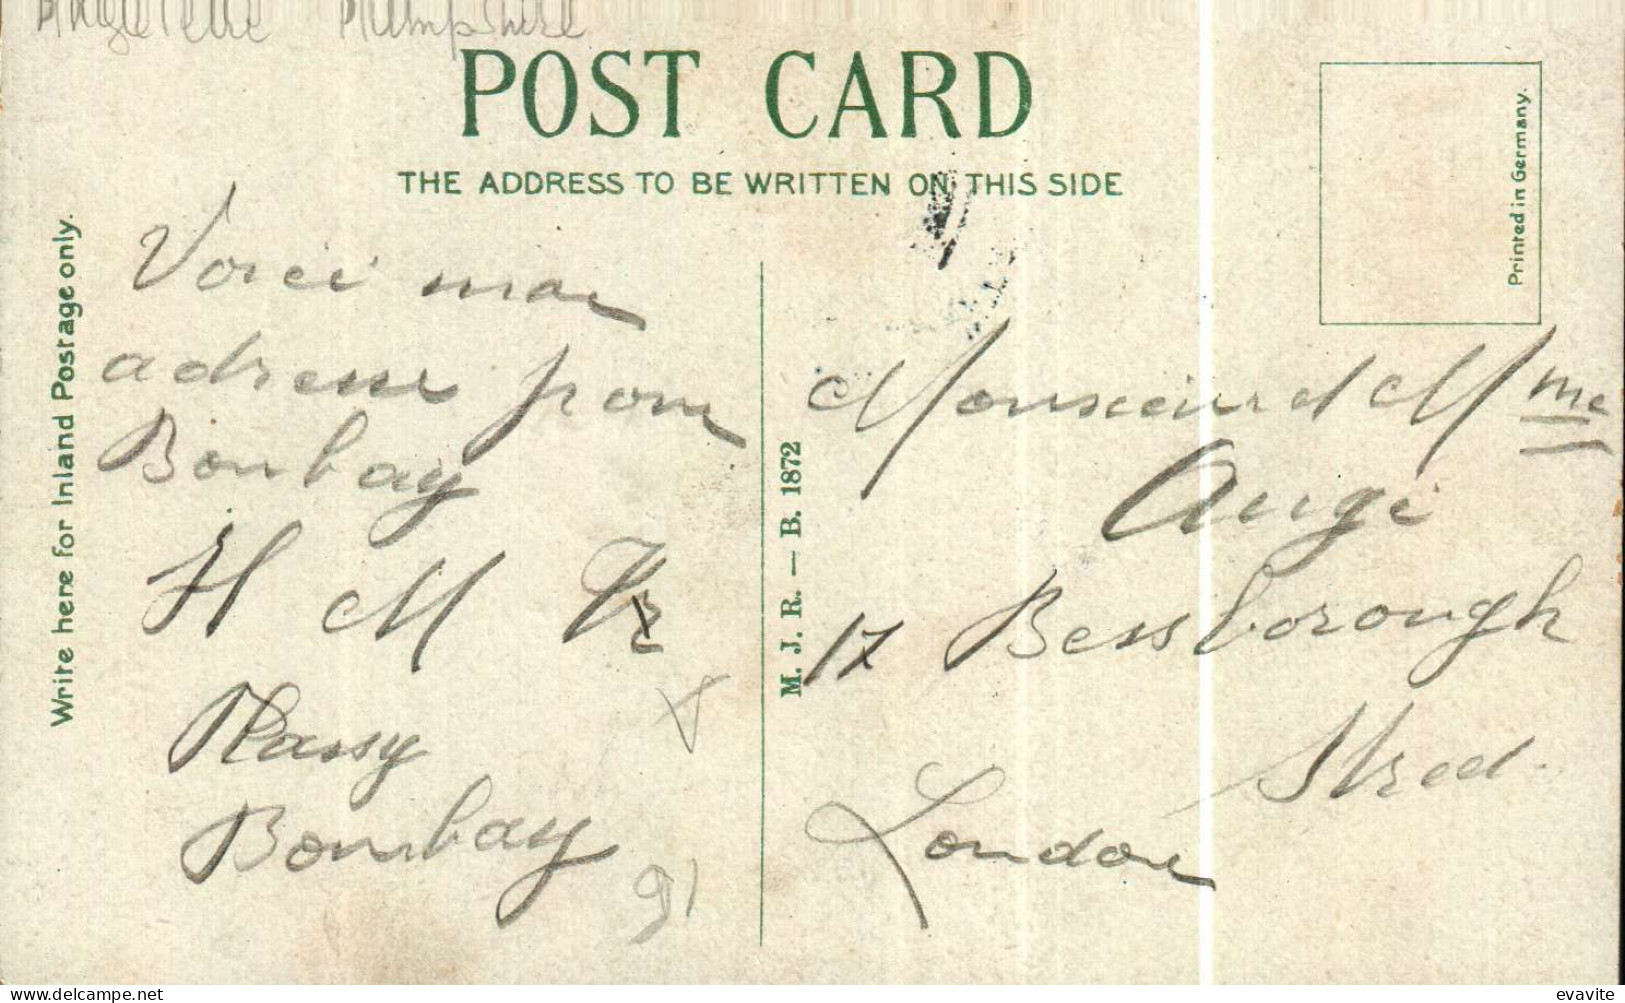 Angleterre Hampshire
POST CARD
THE ADDRESS TO BE WRITTEN ON THIS SIDE
Printed in Germany.
Write here for Inland Postage only.
M. J. R. — B. 1872
Voici mon
adresse pour
Bombay
H M
Massy
Bombay
91
Monsieur et Mme
Augé
17 Bessborough
Street
London
evavite